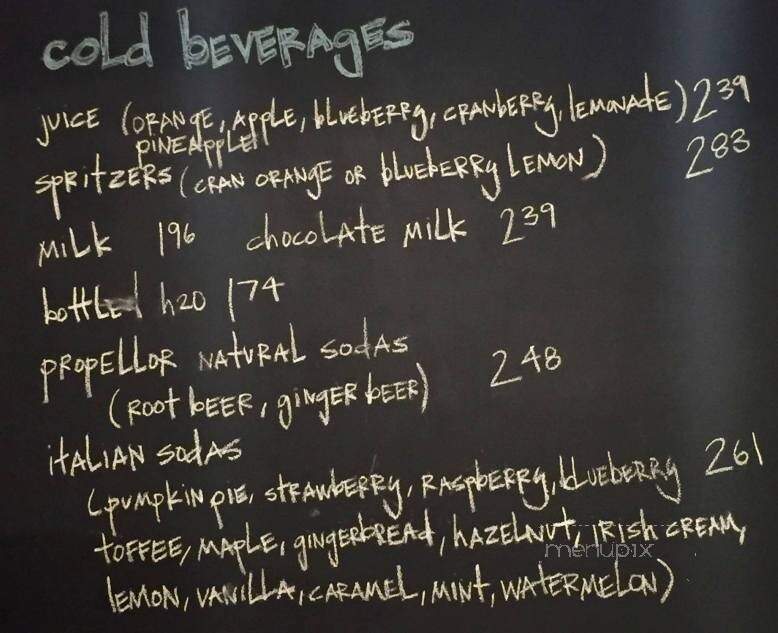 cold beverages
juice (orange, apple, blueberry, cranberry, lemonade) 2 39
pineapple
spritzers (cran orange or blueberry lemon) 2 83
milk 1 96 chocolate milk 2 39
bottled h2o 1 74
propellor natural sodas
(root beer, ginger beer) 2 48
italian sodas
(pumpkin pie, strawberry, raspberry, blueberry 2 61
toffee, maple, gingerbread, hazelnut, irish cream,
menupix
lemon, vanilla, caramel, mint, watermelon)